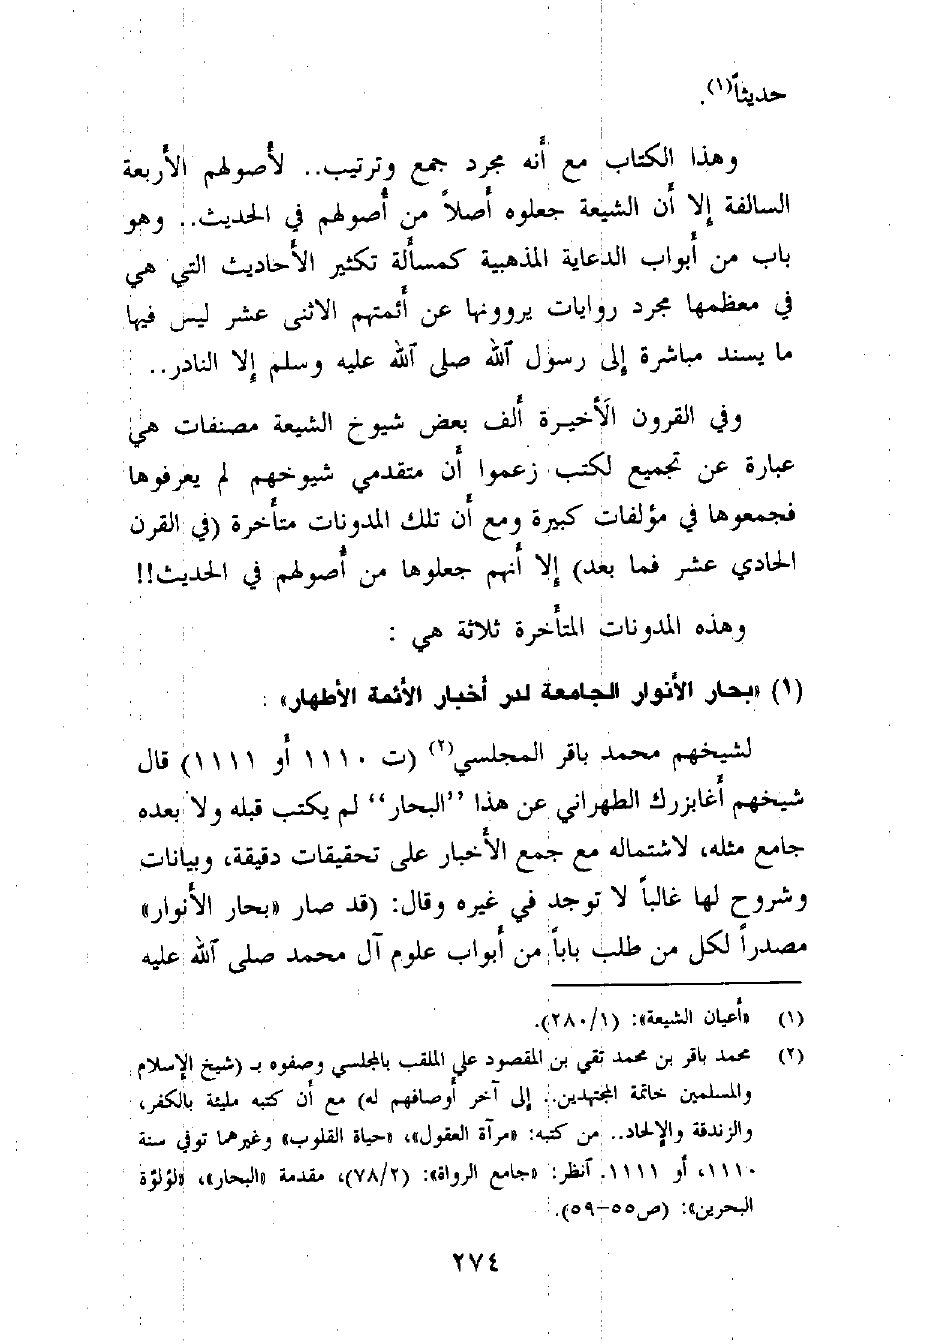 حديثاً(١).
وهذا الكتاب مع أنه مجرد جمع وترتيب.. لأصولهم الأربعة
السالفة إلا أن الشيعة جعلوه أصلاً من أصولهم في الحديث.. وهو
باب من أبواب الدعاية المذهبية كمسألة تكثير الأحاديث التي هي
في معظمها مجرد روايات يروونها عن أئمتهم الاثنى عشر ليس فيها
ما يسند مباشرة إلى رسول الله صلى الله عليه وسلم إلا النادر..
وفي القرون الأخيرة ألف بعض شيوخ الشيعة مصنفات هي
عبارة عن تجميع لكتب زعموا أن متقدمي شيوخهم لم يعرفوها
فجمعوها في مؤلفات كبيرة ومع أن تلك المدونات متأخرة (في القرن
الحادي عشر فما بعد) إلا أنهم جعلوها من أصولهم في الحديث!!
وهذه المدونات المتأخرة ثلاثة هي :
(١) «بحار الأنوار الجامعة لدر أخبار الأئمة الأطهار» :
لشيخهم محمد باقر المجلسي(٢) (ت ١١١٠ أو ١١١١) قال
شيخهم أغابزرك الطهراني عن هذا ”البحار“ لم يكتب قبله ولا بعده
جامع مثله، لاشتماله مع جمع الأخبار على تحقيقات دقيقة، وبيانات
وشروح لها غالباً لا توجد في غيره وقال: (قد صار «بحار الأنوار»
مصدراً لكل من طلب باباً من أبواب علوم آل محمد صلى الله عليه
(١) «أعيان الشيعة»: (٢٨٠/١).
(٢) محمد باقر بن محمد تقي بن المقصود علي الملقب بالمجلسي وصفوه بـ (شيخ الإسلام
والمسلمين خاتمة المجتهدين.. إلى آخر أوصافهم له) مع أن كتبه مليئة بالكفر،
والزندقة والإلحاد.. من كتبه: «مرآة العقول»، «حياة القلوب» وغيرهما توفي سنة
١١١٠، أو ١١١١. أنظر: «جامع الرواة»: (٧٨/٢)، مقدمة «البحار»، «لؤلؤة
البحرين»: (ص٥٥–٥٩).
٢٧٤